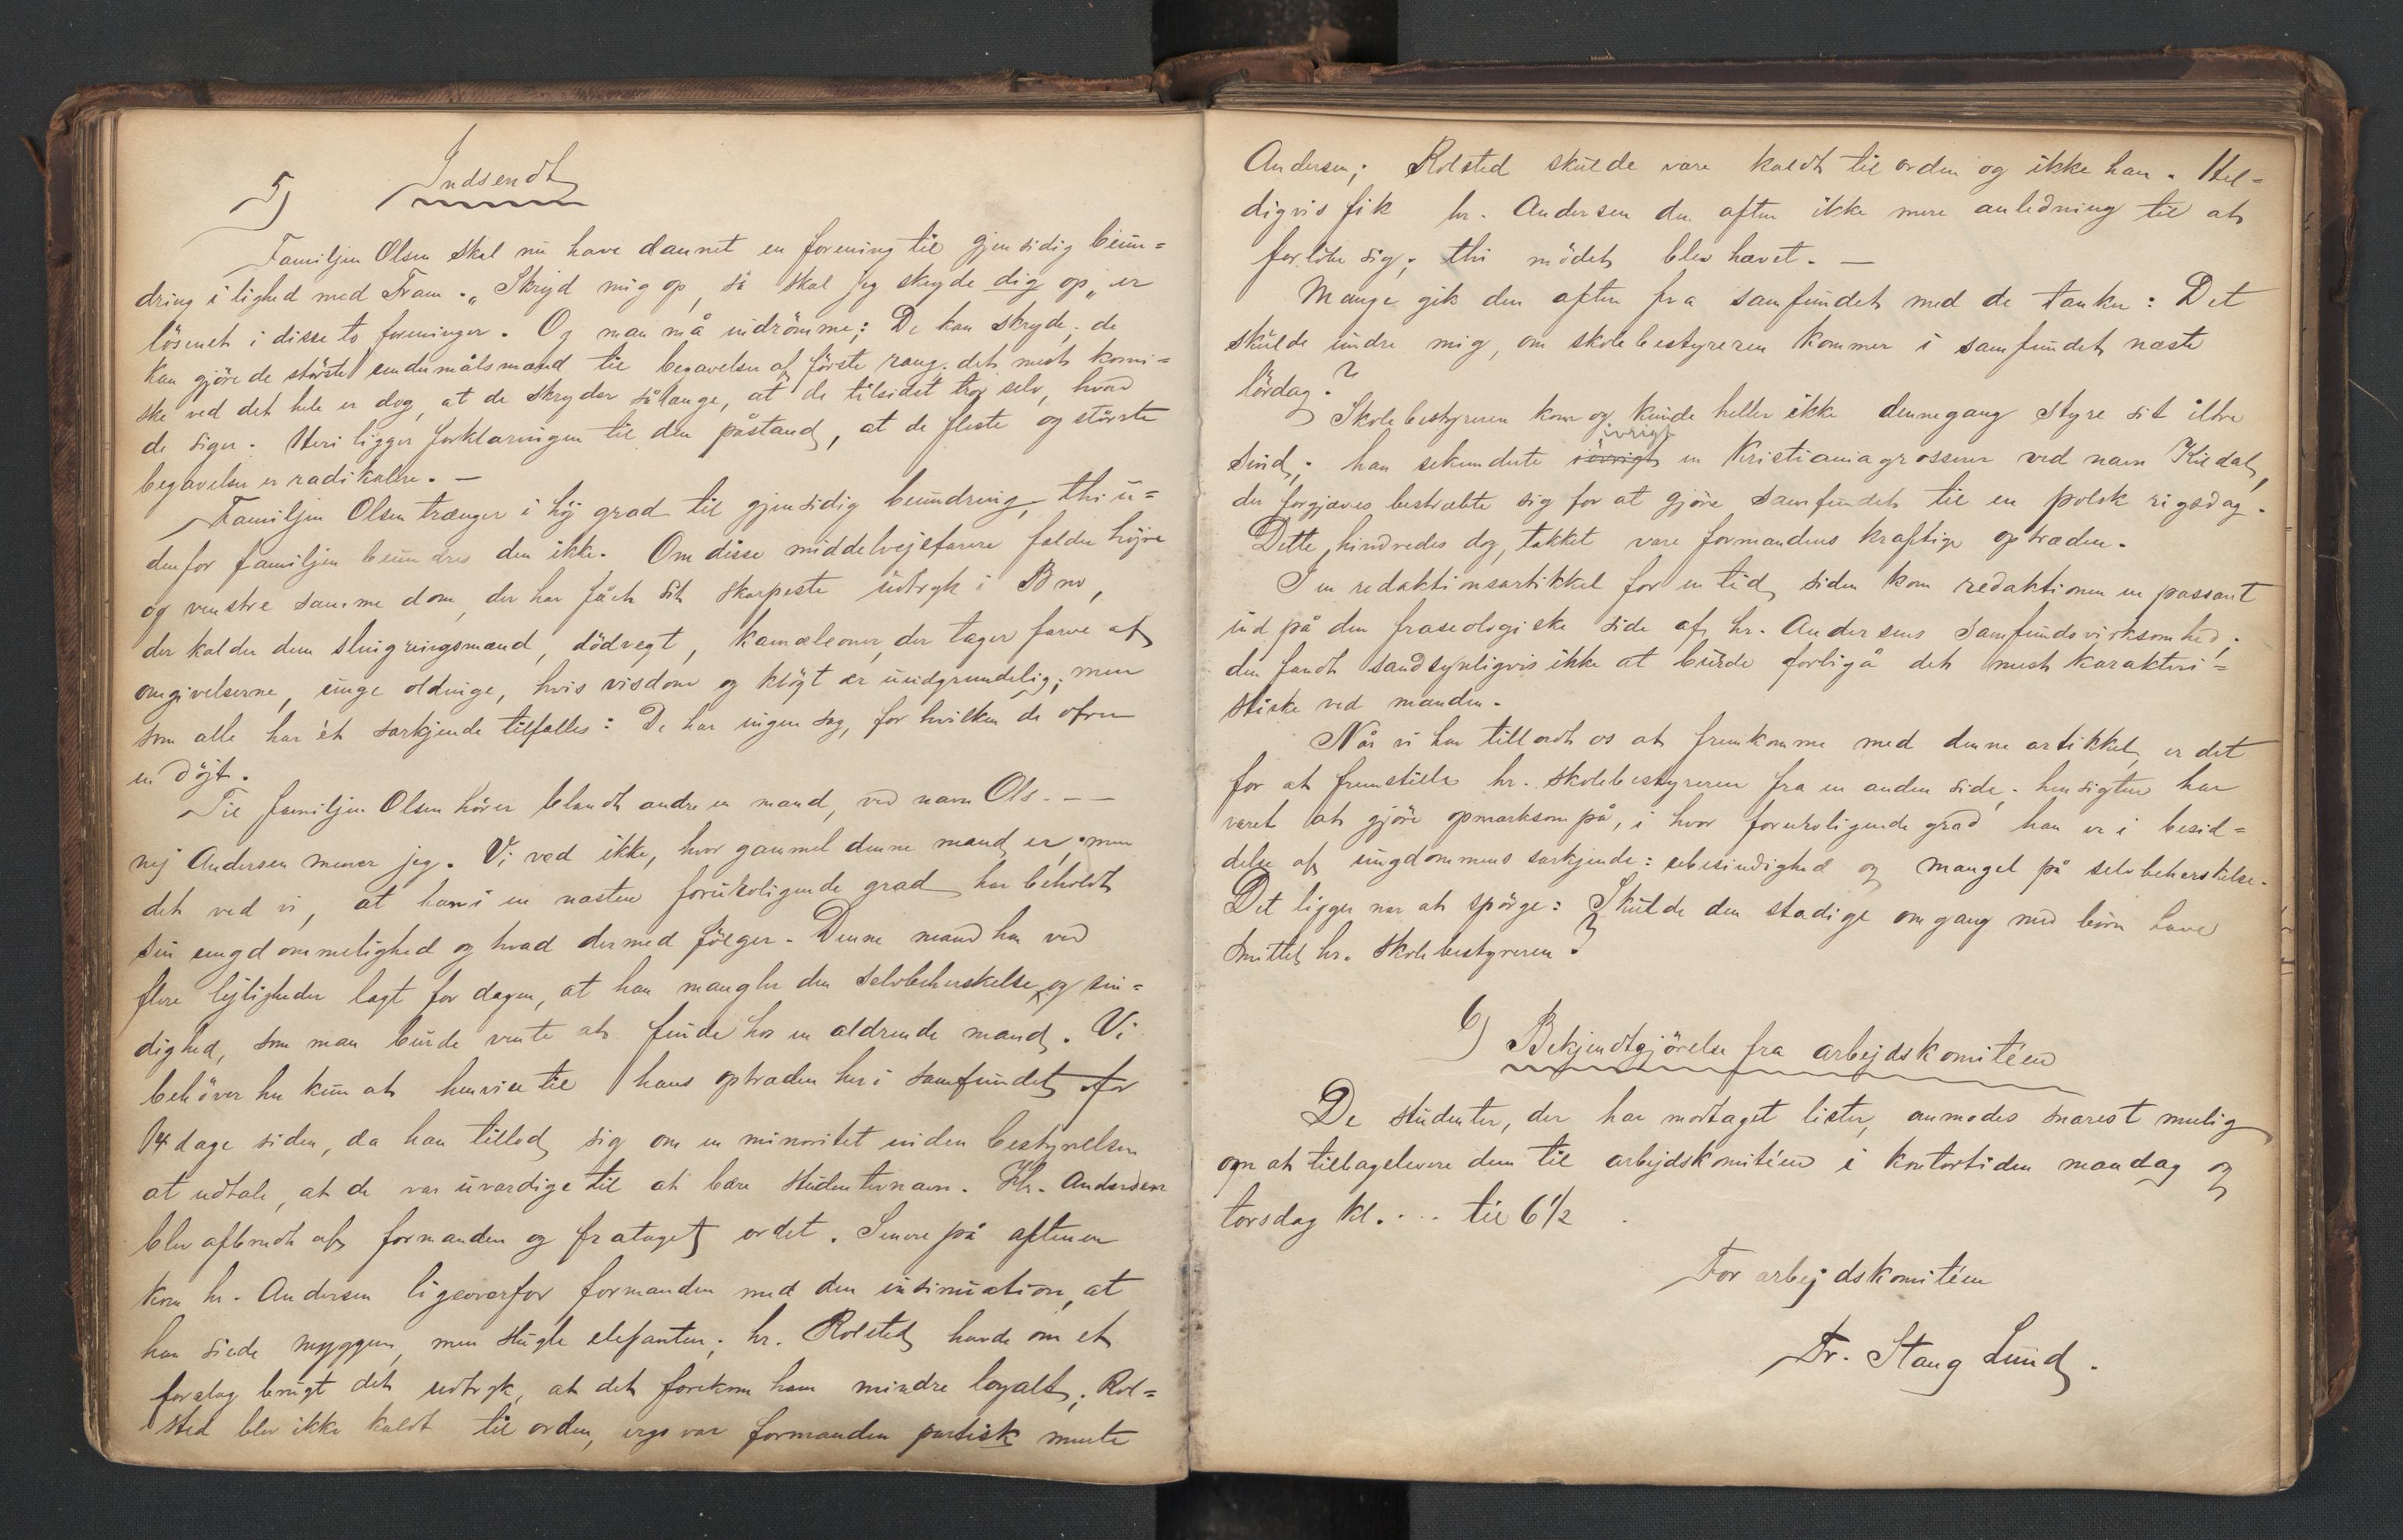 5) Indsendt
Familjen Olsen skal nu have dannet en forening til gjensidig beun=
dring i lighed med Fram. „Skryd mig op, så skal jeg skryde dig op„ er
løsenet i disse to foreninger. Og man må indrømme: De kan skryde; de
kan gjøre de største endumålsmænd til begavelser af første rang. det mest komi=
ske ved det hele er dog, at de skryder sålænge, at de tilsidst tror selv, hvad
de siger. Heri ligger forklaringen til den påstand, at de fleste og største
begavelser er radikalere. —
Familjen Olsen trænger i høj grad til gjensidig beundring, thi u=
denfor familjen beundres den ikke. Om disse middelvejsfarere fælder højre
og venstre samme dom, der har fået sit skarpeste udtryk i Bno,
der kalder dem slingringsmænd, dødvegt, kamæleoner, der tager farve af
omgivelserne, unge oldinge, hvis visdom og kløgt er uudgrundelig; men
som alle har ét særkjende tilfælles: De har ingen sag, for hvilken de ofrer
en døjt.
Til familjen Olsen hører blandt andre en mand, ved navn Ols. — —
nej Andersen mener jeg. Vi ved ikke, hvor gammel denne mand er; men
det ved vi, at han i en næsten foruroligende grad har beholdt
sin ungdommelighed og hvad dermed følger. Denne mand har ved
flere lejligheder lagt for dagen, at han mangler den selvbeherskelse og sin=
dighed, som man burde vente at finde hos en aldrende mand. Vi
behøver her kun at henvise til hans optræden her i samfundet for
14 dage siden, da han tillod sig om en minoritet inden bestyrelsen
at udtale, at de var uværdige til at bære studenternavn. Hr. Andersen
blev afbrudt af formanden og frataget ordet. Senere på aftenen
kom hr. Andersen ligeoverfor formanden med den insinuation, at
han siede myggen, men slugte elefanten; hr. Rolsted havde om et
forslag brugt det udtryk, at det forekom ham mindre loyalt; Rol=
sted blev ikke kaldt til orden, ergo var formanden partisk mente
Andersen; Rolsted skulde være kaldt til orden og ikke han. Hel=
digvis fik hr. Andersen den aften ikke mere anledning til at
forløbe sig; thi mødet blev hævet. —
Mange gik den aften fra samfundet med de tanker: Det
skulde undre mig, om skolebestyreren kommer i samfundet næste
lørdag?
Skolebestyreren kom og kunde heller ikke dennegang styre sit iltre
sind; han sekunderte iøvrigt ivrigt en Kristianiagrosserer ved navn Kildal,
der forgjæves bestræbte sig for at gjøre samfundet til en polsk rigsdag.
Dette hindredes dog, takket være formandens kraftige optræden.
I en redaktionsartikkel for en tid siden kom redaktionen en passant
ind på den fraseologiske side af hr. Andersens samfundsvirksomhed;
den fandt sandsynligvis ikke at burde forbigå det mest karakteri=
stiske ved manden.
Når vi har tilladt os at fremkomme med denne artikkel, er det
for at fremstille hr. skolebestyreren fra en anden side; hensigten har
været at gjøre opmærksom på, i hvor foruroligende grad han er i besid=
delse af ungdommens særkjende: ubesindighed og mangel på selvbeherskelse.
Det ligger nær at spørge: Skulde den stadige omgang med børn have
smittet hr. skolebestyreren?
6) Bekjendtgjørelse fra arbejdskomitéen
De studenter, der har modtaget lister, anmodes snarest mulig
om at tilbagelevere dem til arbejdskomitéen i kontortiden mandag og
torsdag kl. . . . til 6 1/2
For arbejdskomitéen
Fr. Stang Lund.